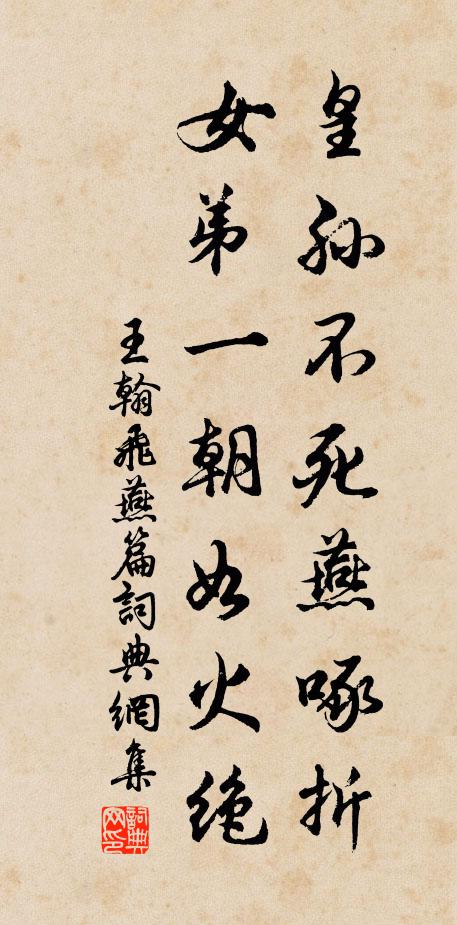 皇孙不死燕啄折
女弟一朝如火绝
王翰飛燕篇詞典網集
詞典网印